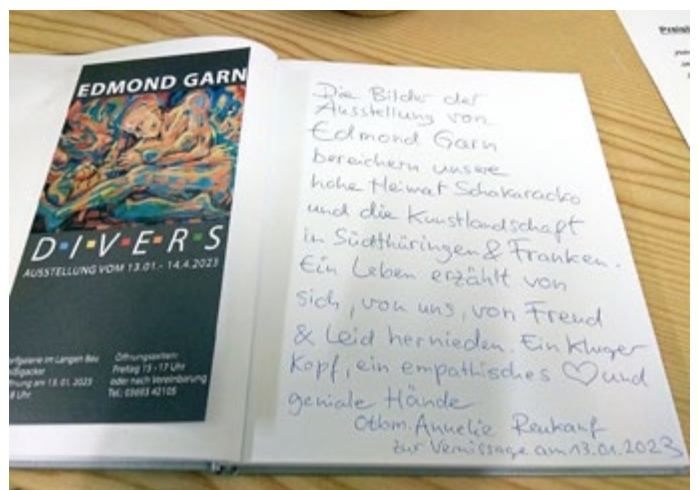 EDMOND GARN
D·I·V·E·R·S
AUSSTELLUNG VOM 13.01.- 14.4.2023
im Langen Bau
Öffnungszeiten:
Freitag 15 - 17 Uhr
oder nach Vereinbarung
Tel.: 03693 42105
am 13. 01. 2023
Uhr
Die Bilder der
Ausstellung von
Edmond Garn
bereichern unsere
hohe Heimat Schakaracko
und die Kunstlandschaft
in Südthüringen & Franken.
Ein Leben erzählt von
sich, von uns, von Freud
& Leid hernieden. Ein kluger
Kopf, ein empathisches ♡ und
geniale Hände
Otbm. Annelie Reukauf
zur Vernissage am 13.01.2023